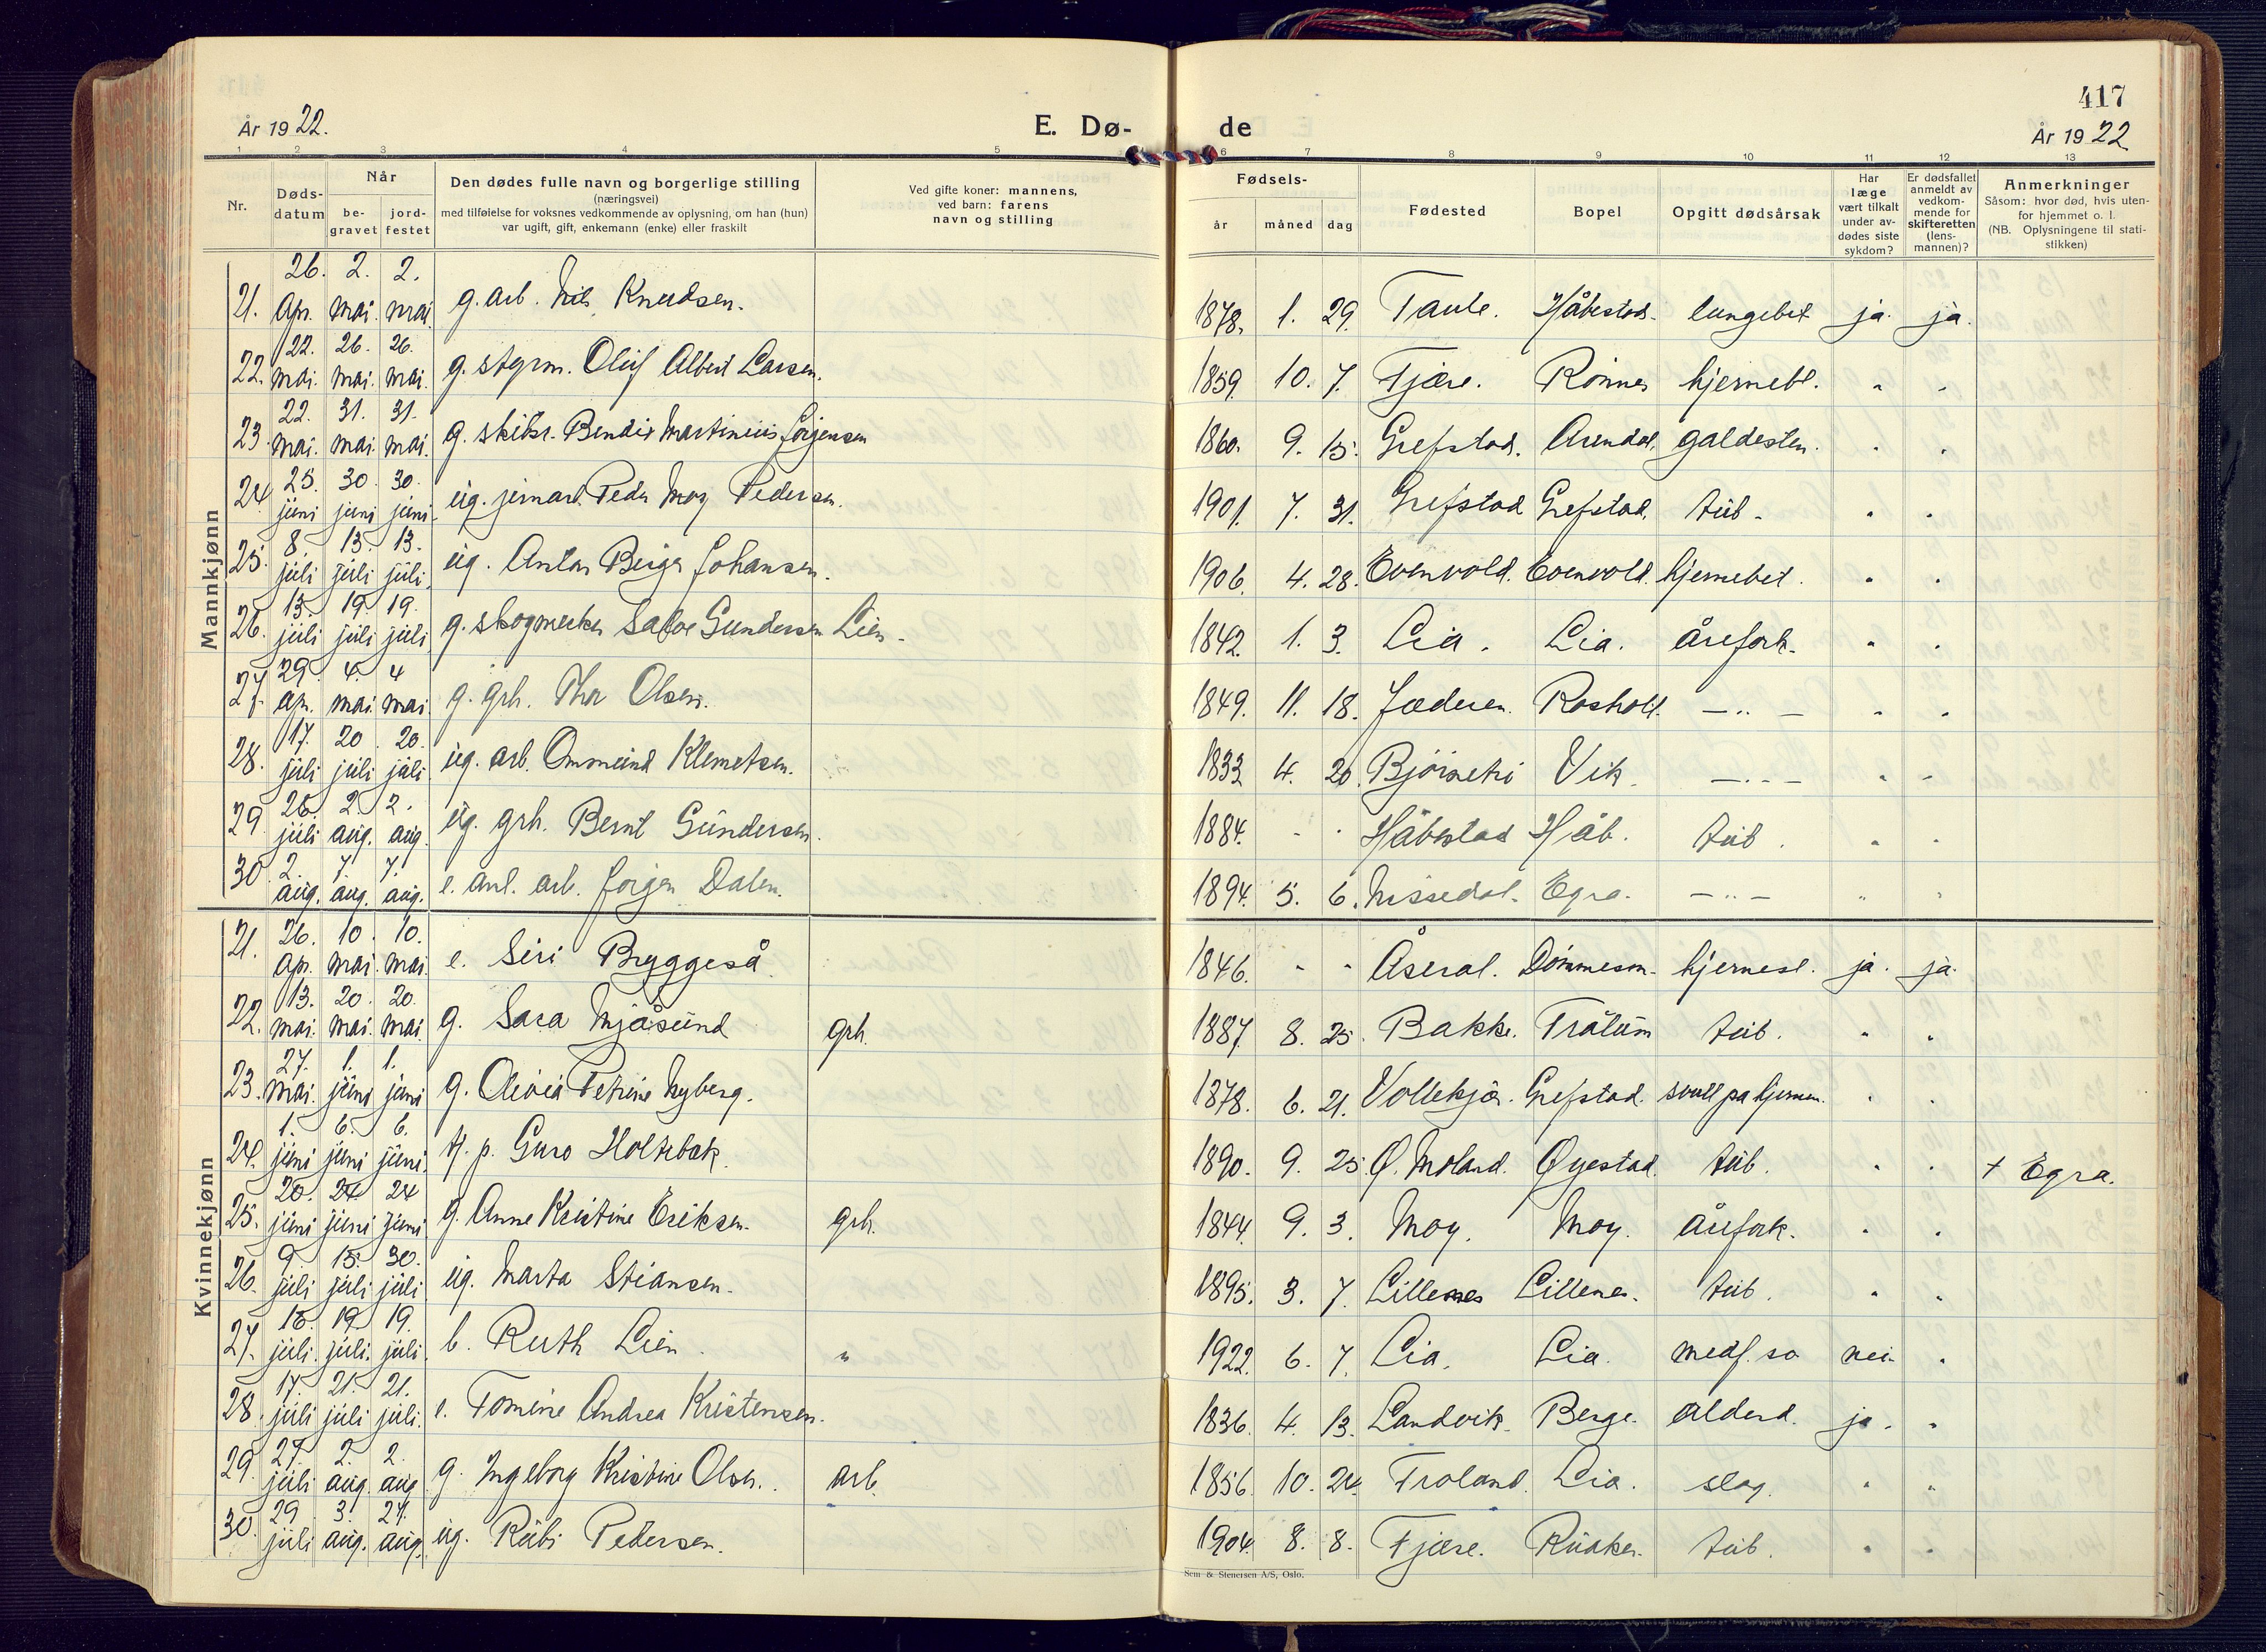 417
År 1922.
E. Dø-
de
År 1922
1 2 3 4 5 6 7 8 9 10 11 12 13
Nr.
Døds-
datum
Når
be-
gravet
jord-
festet
Den dødes fulle navn og borgerlige stilling
(næringsvei)
med tilføielse for voksnes vedkommende av oplysning, om han (hun)
var ugift, gift, enkemann (enke) eller fraskilt
Ved gifte koner: mannens,
ved barn: farens
navn og stilling
Fødsels-
år måned dag
Fødested
Bopel
Opgitt dødsårsak
Har
læge
vært tilkalt
under av-
dødes siste
sykdom?
Er dødsfallet
anmeldt av
vedkom-
mende for
skifteretten
(lens-
mannen)?
Anmerkninger
Såsom: hvor død, hvis uten-
for hjemmet o. l.
(NB. Oplysningene til stati-
stikken)
Mannkjønn
21. 26. Apr. 2. mai. 2. mai. g. arb. Nils Knudsen. 1878. 1. 29. Taule. Håbestad. lungebet ja. ja.
22. 22. mai. 26. mai. 26. mai. g. stgrm. Oluf Albert Larsen. 1859. 10. 7. Fjære. Rönnes hjernebl. " "
23. 22. mai. 31. mai. 31. mai. g. skibsr. Bendix Martinius Jørgensen 1860. 9. 15. Grefstad. Arendal. galdesten. " "
24. 25. juni 30. juni 30. juni. ug. jernarb. Peder Moy Pedersen. 1901. 7. 31. Grefstad Grefstad. tub. " "
25. 8. juli 13. juli 13. juli. ug. Anton Birger Johansen. 1906. 4. 28. Evenvold. Evenvold. hjernebet. " "
26. 13. juli 19. juli 19. juli g. skogmerker Salve Gundersen Lien. 1842. 1. 3. Lia. Lia. årefork. " "
27. 29. Apr. 4. mai. 4 mai. g. grh. Thor Olsen. 1849. 11. 18. Jæderen. Rosholt. — " — " "
28. 17. juli 20. juli 20. juli ug. arb. Ommund Klemetsen. 1833 4. 20. Vik. — " — " "
29. 26. juli 2. aug. 2. aug. ug. grh. Bernt Gundersen. 1884. " " Håbestad Håb. tub. " "
30. 2. aug. 7. aug. 7. aug. e. anl. arb. Jørgen Dalen. 1894. 5. 6. Nissedal. Egra. — " — " "
Kvinnekjønn
21. 26. Apr. 10. mai. 10. mai. e. Siri Bryggeså. 1846. " " Åseral. Dömmesm. hjernesl. ja. ja.
22. 13. mai. 20. mai. 20. mai g. Sara Mjåsund grh. 1887. 8. 25. Bakke. Tråtum tub. " "
23. 27. mai. 1. juni 1. juni g. Olivia Petrine Nyberg. 1878. 6. 21. Vollekjær. Grefstad. svull på hjernen. " "
24. 1. juni 6. juni 6. juni. fr. p. Guro Holtebæk. 1890. 9. 25. Ø. Moland. Øyestad. tub. " " † Egra.
25. 20. juni 24. juni 24 juni g. Anne Kristine Eriksen. grh. 1844. 9. 3. Moy. Moy. årefork. " "
26. 9. juli 15. juli 30. juli ug. Marta Stiansen. 1895. 3. 7. Lillenes Lillenes. tub. " "
27. 15. juli. 19. juli. 19. juli. b. Ruth Lien. " 1922. 6. 7. Lia. Lia. medf. so nei. "
28. 17. juli 21. juli 21. juli. e. Tomine Andrea Kristensen. 1836. 4. 13. Landvik. Berge. alderd. ja. "
29. 27. juli 2. aug. 2. aug. g. Ingeborg Kristine Olsen. arb. 1856. 10. 24. Froland. Lia. slag. " "
30. 29 juli 3. aug. 27. aug. ug. Rubi Pedersen. 1904. 8. 8. Fjære. Ruaker. tub. " "
Sem & Stenersen A/S, Oslo.